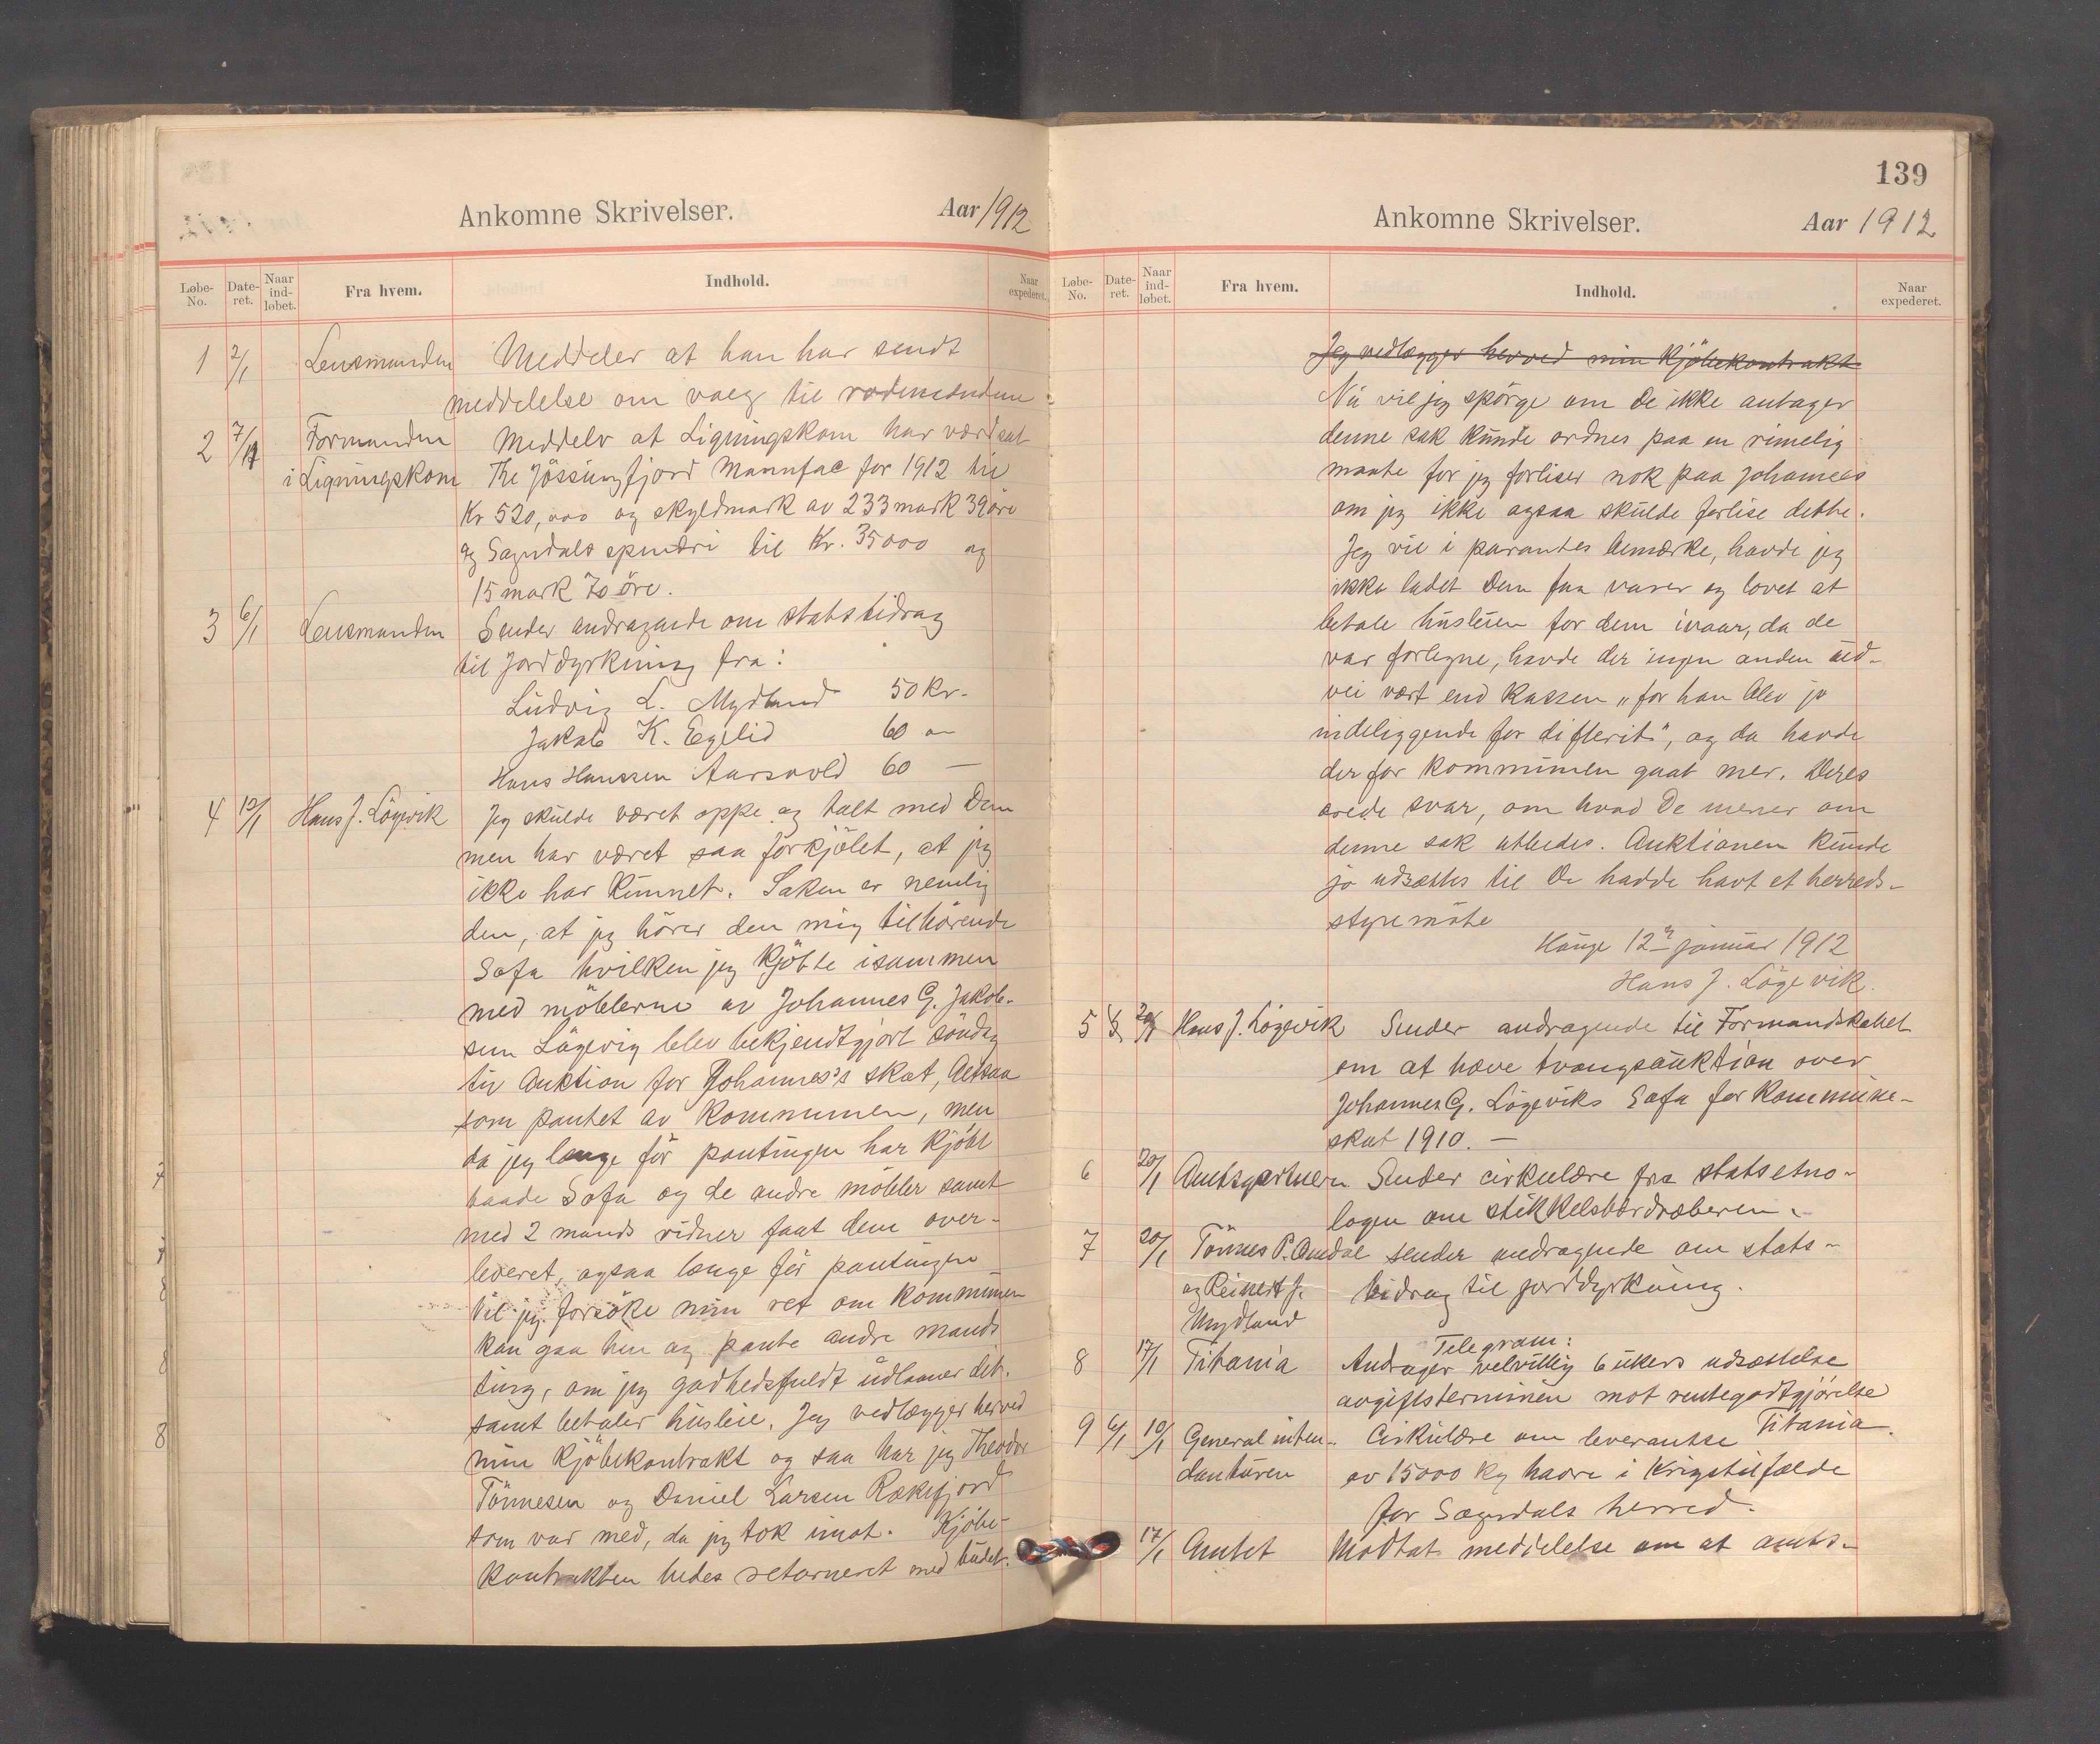 Ankomne Skrivelser. Aar 1912
Løbe-No. Date-ret. Naar ind-løbet. Fra hvem. Indhold. Naar expederet.
1 2/1 Lensmanden Meddeler at han har sendt
meddelelse om valg til rodemændene
2 7/1 Formanden Meddeler at Ligningskom har værdsat
i Ligningskom The Jössingfjord Manufac for 1912 til
Kr 520,000 og skyldmark av 233 mark 39 öre
og Sogndals spinderi til Kr. 35000 og
15 mark 70 öre.
3 6/1 Lensmanden Sender andragande om statsbidrag
til Jorddyrkning fra:
Ludvig L. Mydland 50 Kr.
Jakob K. Eglid 60 "
Hans Hanssen Aarsvold 60 —
4 12/1 Hans J. Lögevik Jeg skulde været oppe og talt med Dem
men har været saa forkjölet, at jeg
ikke har kunnet. Saken er nemlig
den, at jeg hörer den mig tilhörende
Sofa hvilken jeg kjöbte isammen
med möblerne av Johannes G. Jakob-
sen Lögevig blev bekjendtgjort söndag
til Auktion for Johannes's skat, Altsaa
som pantet av kommunen, men
da jeg lange för pantingen har kjöbt
baade Sofa og de andre möbler samt
med 2 mands vidner faat dem over-
leveret, ogsaa længe för pantingen
Vil jeg forsöke min ret om kommunen
kan gaa hen og pante andre mands
ting, om jeg godhedsfuldt udlaaner det.
samt betaler husleie. Jeg vedlægger herved
min kjöbekontrakt og saa har jeg Theodor
Tönnesen og Daniel Larsen Rækefjord
som var med, da jeg tok imot. Kjöbe-
kontrakten bedes returneret med budet.
139
Ankomne Skrivelser. Aar 1912
Løbe-No. Date-ret. Naar ind-løbet. Fra hvem. Indhold. Naar expederet.
Jeg vedlægger herved min Kjöbekontrakt
Nu vil jeg spörge om De ikke antager
denne sak kunde ordnes paa en rimelig
maate for jeg forliser nok paa Johannes
om jeg ikke ogsaa skulde forlise dette.
Jeg vil i parantes bemærke, havde jeg
ikke ladet Dem faa varer og lovet at
betale husleien for dem ivaar, da de
var forlegne, havde der ingen anden ud-
vei vært end kassen "for han blev jo
indeliggende for difterit", og da havde
der for kommunen gaat mer. Deres
ærede svar, om hvad De mener om
denne sak utbedes. Auktionen kunde
jo udsættes til De hadde havt et herreds-
styremöte
Hauge 12te januar 1912
Hans J. Lögevik.
5 20/1 Hans J. Lögevik Sender andragende til Formandskabet
om at hæve tvangsauktion over
Johannes G. Lögeviks Sofa for Kommune-
skat 1910. —
6 20/1 Amtsgartneren Sender cirkulære fra statsetno-
logen om stikkelsbærdræberen.
7 20/1 Tönnes P. Amdal sender andragende om stats-
og Reinert J. bidrag til jorddyrkning.
Mydland
Telegram:
8 17/1 Titania Andrager velvillig 6 ukers udsættelse
avgiftsterminen mot rentegodtgjörelse
Titania.
9 6/1 10/1 Generalinten- Cirkulære om leverantse
danturen av 15000 kg havre i Krigstilfælde
for Sogndals herred.
17/1 Amtet Modtat meddelelse om at amts-